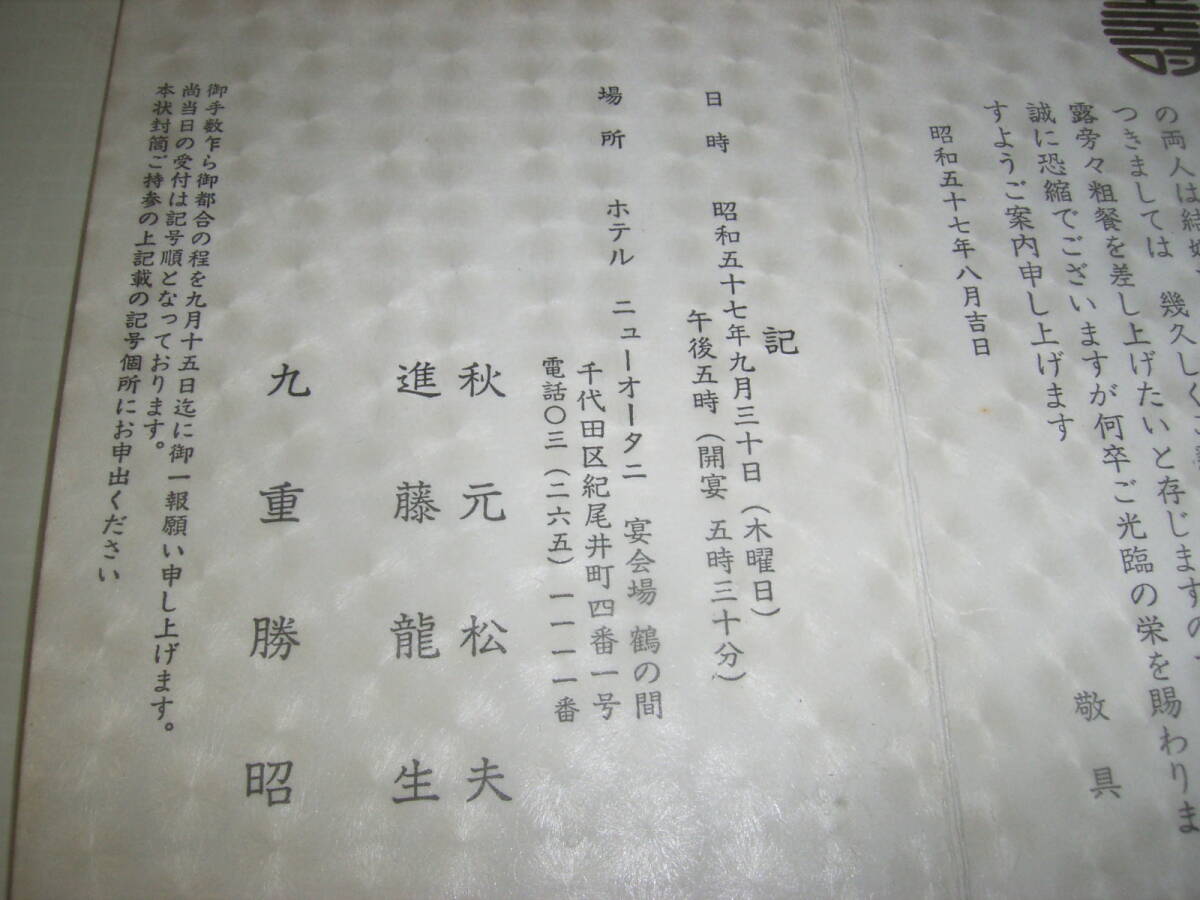 壽
の両人は結婚
つきましては 幾久しくご
露旁々粗餐を差し上げたいと存じますの
誠に恐縮でございますが何卒ご光臨の栄を賜わりま
すようご案内申し上げます
敬具
昭和五十七年八月吉日
記
日時 昭和五十七年九月三十日(木曜日)
午後五時(開宴 五時三十分)
場所 ホテル ニューオータニ 宴会場 鶴の間
千代田区紀尾井町四番一号
電話〇三(二六五)一一一一番
秋元松夫
進藤龍生
九重勝昭
御手数乍ら御都合の程を九月十五日迄に御一報願い申し上げます。
尚当日の受付は記号順となっております。
本状封筒ご持参の上記載の記号個所にお申出ください